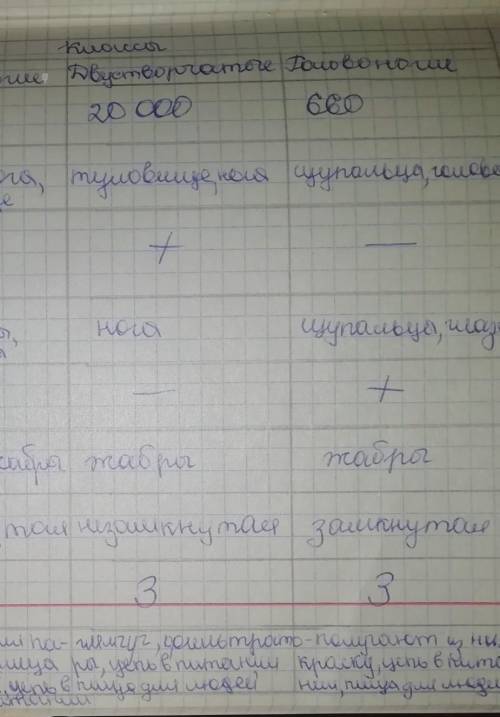 Классы
Двустворчатые Головоногие
20 000 660
туловище, нога щупальца, голова
+ —
нога щупальцы,
— +
жабры жабры
незамкнутая замкнутая
3 3
жемчуг, фильтрато- получают из
ры, цепь в питании краску, цепь в пита
цепь в пище для людей нии, пища для людей